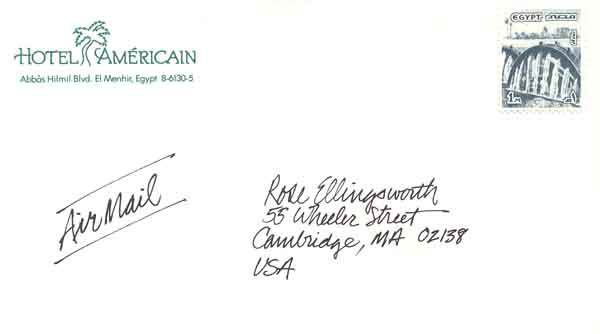 HOTEL AMÉRICAIN
Abbàs Hilmil Blvd. El Menhir, Egypt 8-6130-5
EGYPT مصر
Air Mail
Rose Ellingsworth
55 Wheeler Street
Cambridge, MA 02138
USA